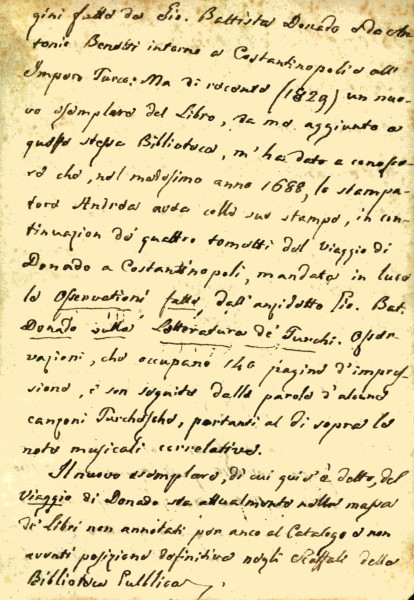 gini fatto da Gio. Battista Donado e da An-
tonio Benetti intorno a Costantinopoli e all'
Impero Turco: Ma di recente (1829) un nuo-
vo esemplare del Libro, da me aggiunto a
questa stessa Biblioteca, m'ha dato a conosce-
re che, nel medesimo anno 1688, lo stampa-
tore Andrea avea colle sue stampe, in con-
tinuazion de' quattro tometti del Viaggio di
Donado a Costantinopoli, mandate in luce
le Osservationi fatte dall'anzidetto Gio. Bat.
Donado sulla Letteratura de' Turchi. Osser-
vazioni, che occupano 140 pagine d'impres-
sione, e son seguite dalle parole d'alcune
canzoni Turchesche, portanti al di sopra le
note musicali correlative.
Il nuovo esemplare, di cui quis'è detto, del
Viaggio di Donado sta attualmente nella massa
de' Libri non annotati per anco al Catalogo e non
aventi posizione definitiva negli Scaffali della
Biblioteca Pubblica.